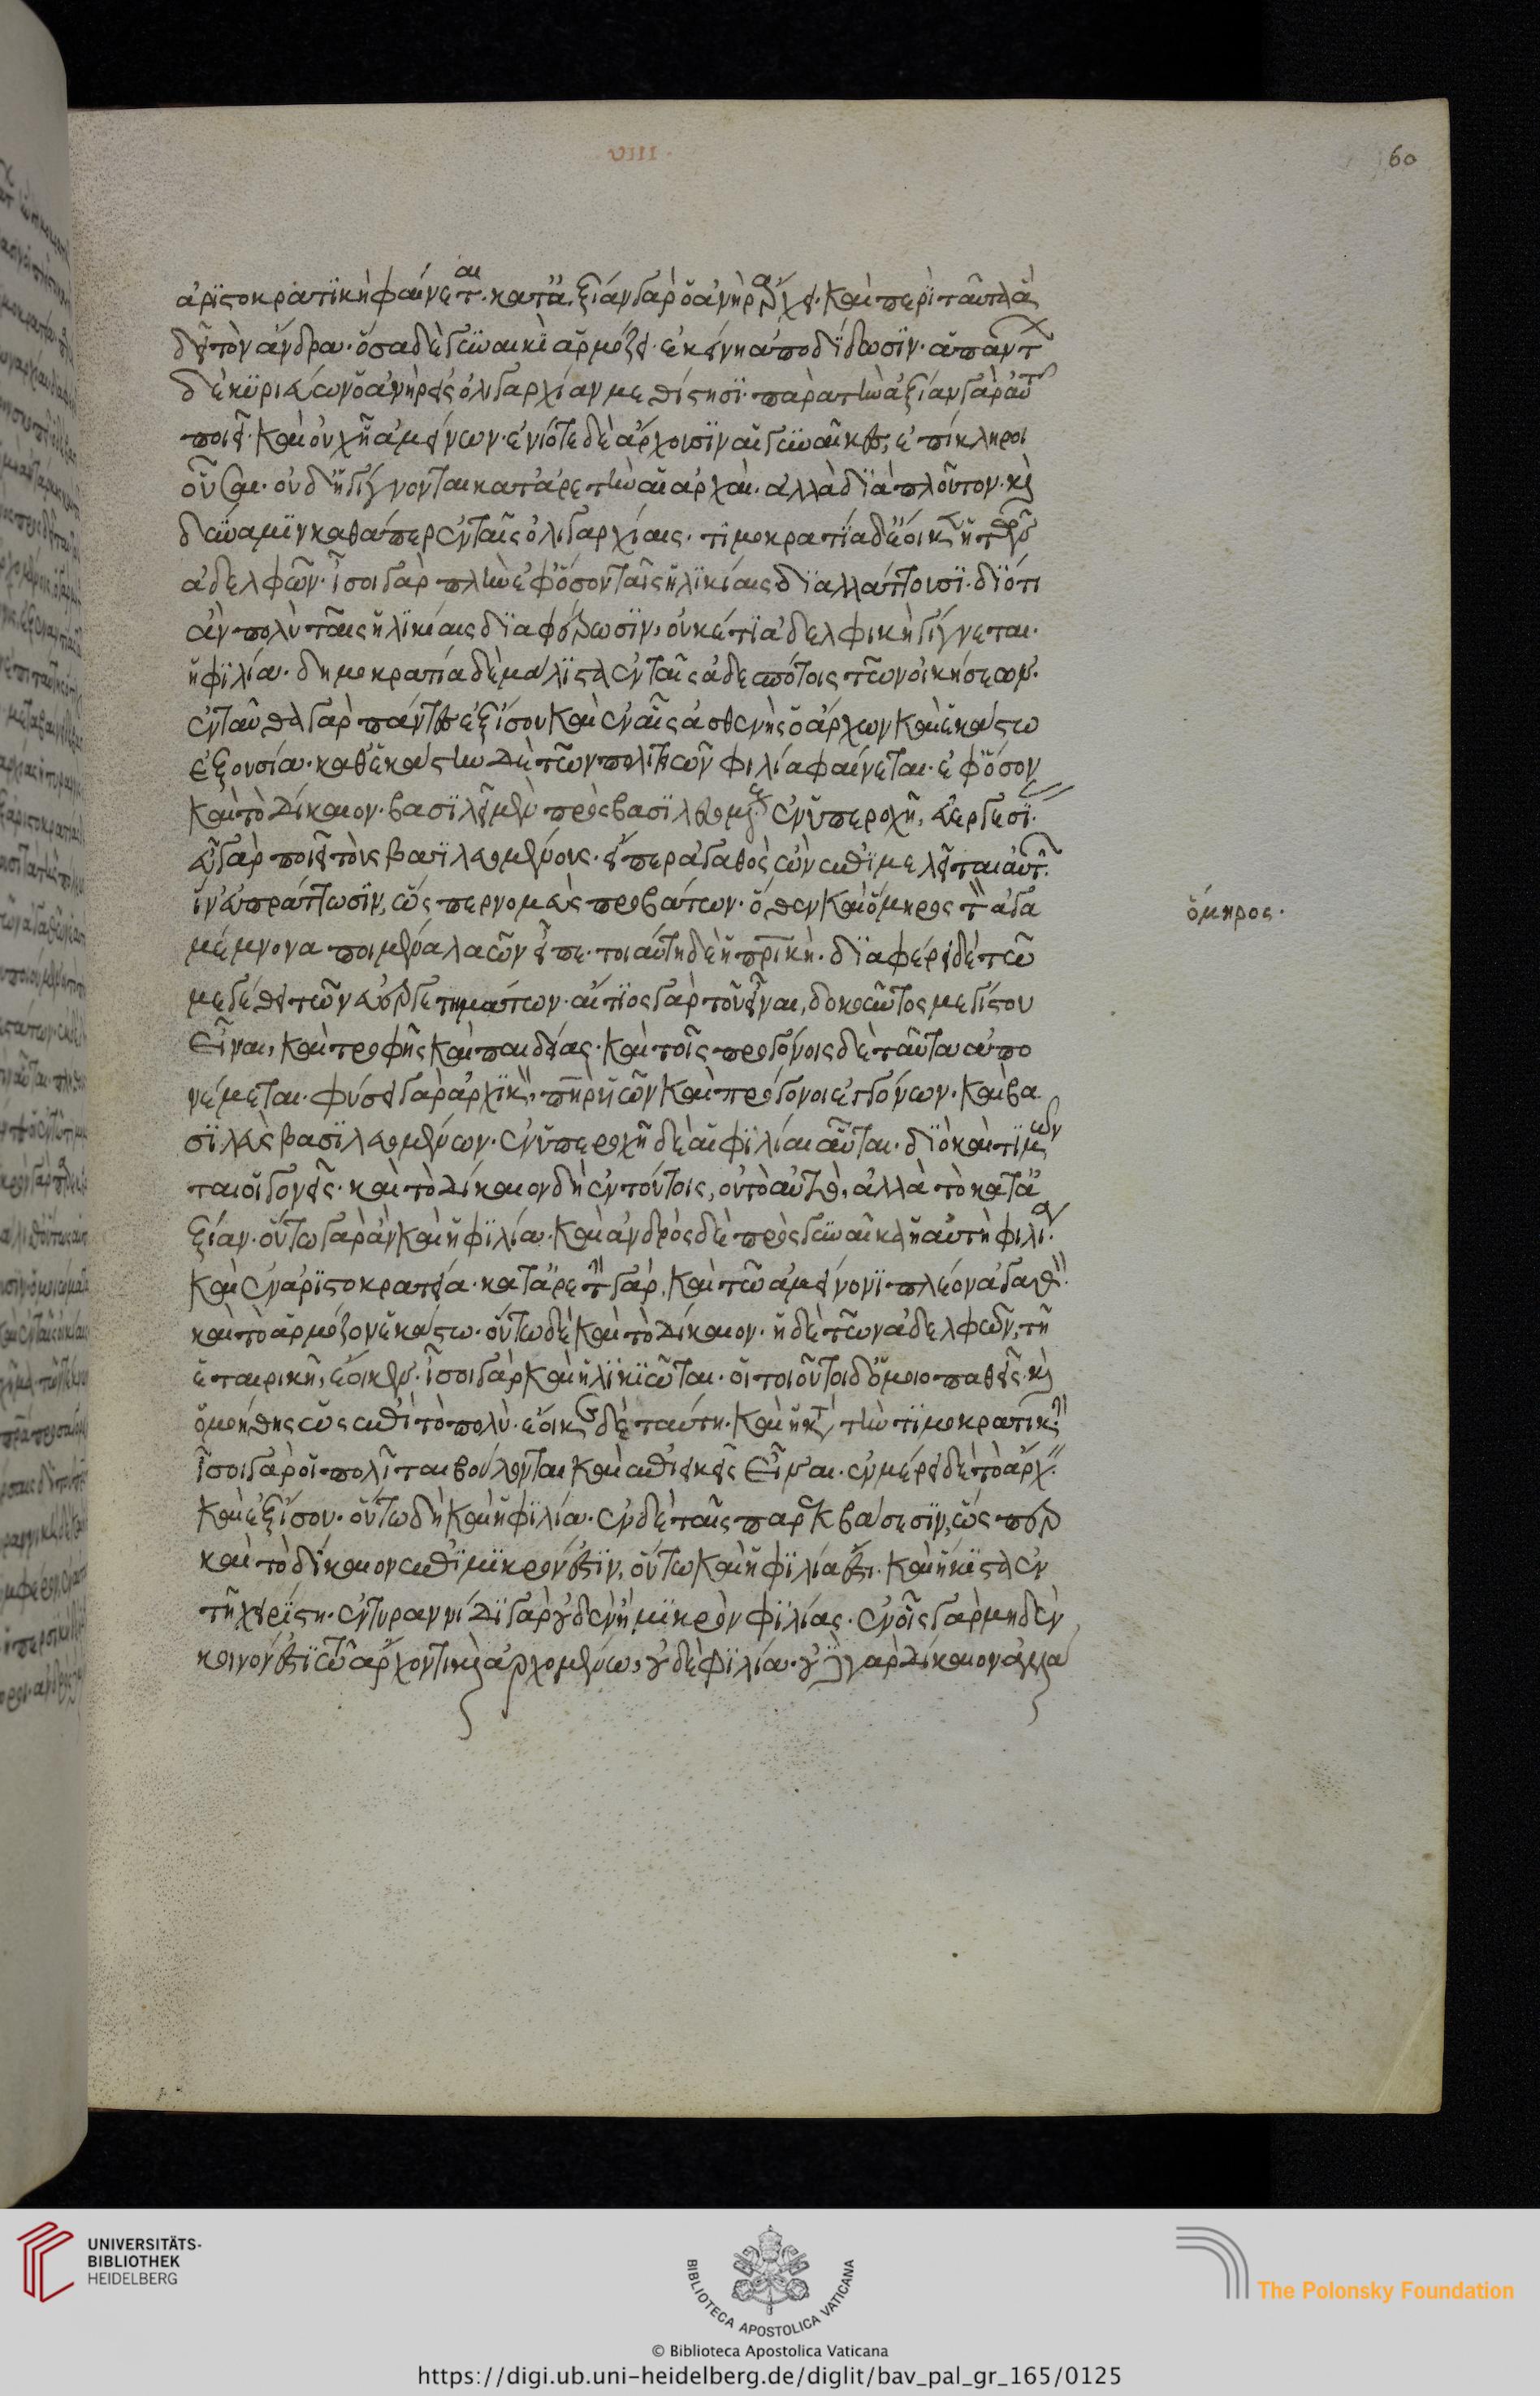 VIII
60
ἀριστοκρατικὴ φαίνεται· κατ' ἀξίαν γὰρ ὁ ἀνὴρ ἄρχει· καὶ περὶ ταῦτα ἃ
δεῖ τὸν ἄνδρα· ὅσα δὲ γυναικὶ ἁρμόζει· ἐκείνη ἀποδίδωσιν· ἁπάντων
δὲ κυριεύων ὁ ἀνὴρ εἰς ὀλιγαρχίαν μεθίστησι· παρὰ τὴν ἀξίαν γὰρ αὐτὸ
ποιεῖ· καὶ οὐχ ᾗ ἀμείνων· ἐνίοτε δὲ ἄρχουσιν αἱ γυναῖκες, ἐπίκληροι
οὖσαι· οὐ δὴ γίγνονται κατ' ἀρετὴν αἱ ἀρχαί· ἀλλὰ διὰ πλοῦτον καὶ
δύναμιν καθάπερ ἐν ταῖς ὀλιγαρχίαις· τιμοκρατία δ' ἔοικεν ἡ τῶν
ἀδελφῶν· ἴσοι γὰρ πλὴν ἐφ' ὅσον ταῖς ἡλικίαις διαλλάττουσι· διότι
ἂν πολὺ ταῖς ἡλικίαις διαφέρωσιν, οὐκέτι ἀδελφικὴ γίγνεται
ἡ φιλία· δημοκρατία δὲ μάλιστα ἐν ταῖς ἀδεσπότοις τῶν οἰκήσεων·
ἐνταῦθα γὰρ πάντες ἐξ ἴσου καὶ ἐν αἷς ἀσθενὴς ὁ ἄρχων καὶ ἑκάστω
ἐξουσία· καθ' ἑκάστην δὲ τῶν πολιτειῶν φιλία φαίνεται· ἐφ' ὅσον
καὶ τὸ δίκαιον· βασιλεῖ μὲν πρὸς βασιλευομένους ἐν ὑπεροχῇ, εὐεργεσίας·
εὖ γὰρ ποιεῖ τοὺς βασιλευομένους· εἴπερ ἀγαθὸς ὢν ἐπιμελεῖται αὐτῶν
ἵν' εὖ πράττωσιν, ὥσπερ νομεὺς προβάτων· ὅθεν καὶ ὅμηρος τὸν ἀγα
μέμνονα ποιμένα λαῶν εἶπε· τοιαύτη δὲ ἡ πατρικὴ· διαφέρει δὲ τῶ
μεγέθει τῶν εὐεργετημάτων· αἴτιος γὰρ τοῦ εἶναι, δοκοῦντος μεγίστου
εἶναι, καὶ τροφῆς καὶ παιδείας· καὶ τοῖς προγόνοις δὲ ταῦτα ἀπο
νέμεται· φύσει γὰρ ἀρχικὸν, πατὴρ υἱῶν καὶ πρόγονοι ἐκγόνων· καὶ βα
σιλεὺς βασιλευομένων· ἐν ὑπεροχῇ δὲ αἱ φιλίαι αὗται· διὸ καὶ τιμῶν
ται οἱ γονεῖς· καὶ τὸ δίκαιον δὴ ἐν τούτοις, οὐ τὸ αὐτὸ, ἀλλὰ τὸ κατ' ἀ
ξίαν· οὕτω γὰρ ἂν καὶ ἡ φιλία· καὶ ἀνδρὸς δὲ πρὸς γυναῖκα ἡ αὐτὴ φιλία
καὶ ἐν ἀριστοκρατεία· κατ' ἀρετὴν γάρ, καὶ τῶ ἀμείνονι πλέον ἀγαθόν·
καὶ τὸ ἁρμόζον ἑκάστω· οὕτω δὲ καὶ τὸ δίκαιον· ἡ δὲ τῶν ἀδελφῶν, τῇ
ἑταιρικῇ, ἔοικεν· ἴσοι γὰρ καὶ ἡλικιῶται· οἱ τοιοῦτοι δ' ὁμοιοπαθεῖς καὶ
ὁμοήθεις ὡς ἐπὶ τὸ πολύ· ἔοικε δὲ ταύτη· καὶ ἡ κατὰ τὴν τιμοκρατικὴν
ἴσοι γὰρ οἱ πολῖται βούλονται καὶ ἐπιεικεῖς εἶναι· ἐν μέρει δὲ τὸ ἄρχειν
καὶ ἐξ ἴσου· οὕτω δὴ καὶ ἡ φιλία· ἐν δὲ ταῖς παρεκβάσεσιν, ὥσπερ
καὶ τὸ δίκαιον ἐπὶ μικρόν ἐστιν, οὕτω καὶ ἡ φιλία ἐστι· καὶ ἥκιστα ἐν
τῇ χειρίστη· ἐν τυραννίδι γὰρ οὐδὲν ἢ μικρὸν φιλίας· ἐν οἷς γὰρ μηδὲν
κοινόν ἐστι τῶ ἄρχοντι καὶ ἀρχομένω, οὐδὲ φιλία· οὐδὲ γὰρ δίκαιον ἀλλὰ
ὅμηρος·
UNIVERSITÄTS-
BIBLIOTHEK
HEIDELBERG
BIBLIOTECA APOSTOLICA VATICANA
The Polonsky Foundation
© Biblioteca Apostolica Vaticana
https://digi.ub.uni-heidelberg.de/diglit/bav_pal_gr_165/0125